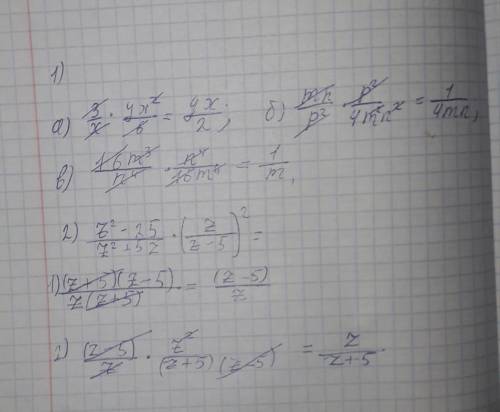 1)
а) 3/x · 4x²/6 = 4x/2; б) mn/p² · p²/4m²n² = 1/4mn,
в) 16m³/n⁴ · n⁴/16m⁴ = 1/m,
2) z² - 25/z² + 5z · (z/z - 5)² =
1) (z+5)(z-5)/z(z+5) = (z-5)/z
2) (z-5)/z · z²/(z+5)(z-5) = z/z+5